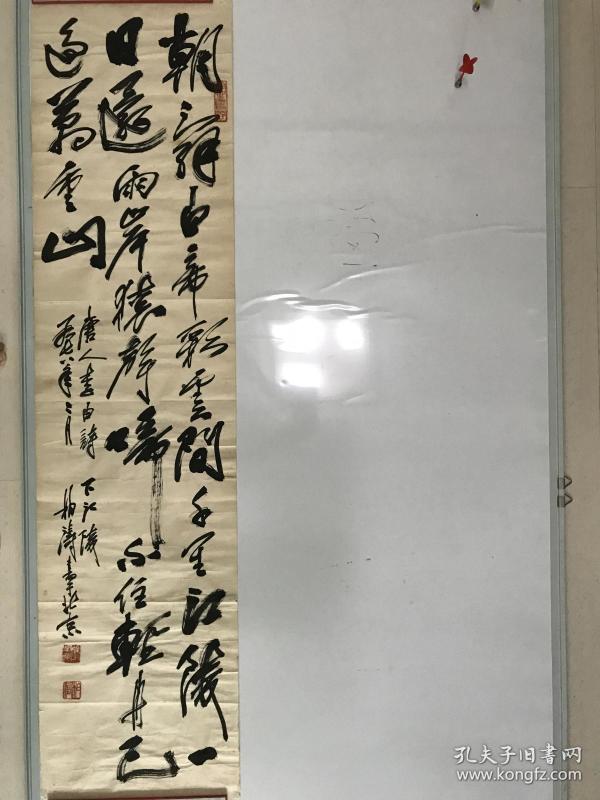 朝辞白帝彩雲間千里江陵一
日還兩岸猿聲啼不住輕舟已
過萬重山
唐人李白詩 下江陵
一九七八年三月 柏濤書於北京
孔夫子旧书网
www.kongfz.com